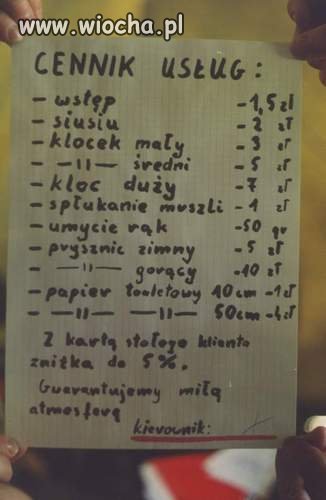 www.wiocha.pl
CENNIK USŁUG:
- wstęp - 1,5 zł
- siusiu - 2 zł
- klocek mały - 3 zł
- —II— średni - 5 zł
- kloc duży - 7 zł
- spłukanie muszli - 1 zł
- umycie rąk - 50 gr
- prysznic zimny - 5 zł
- —II— gorący - 10 zł
- papier toaletowy 10cm - 1 zł
- —II— —II— 50cm - 4 zł
Z kartą stałego klienta
zniżka do 5%.
Guarantujemy miłą
atmosferę
kierownik: